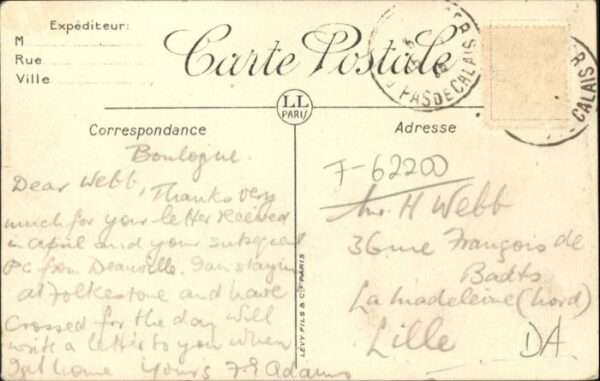 Expéditeur:
M
Rue
Ville
Carte Postale
PAS DE CALAIS
CALAIS
LL
PARIS
Correspondance
Adresse
Boulogne.
Dear Webb, Thanks very
much for your letter received
in April and your subsequent
PC from Deauville. I am staying
at Folkestone and have
crossed for the day will
write a letter to you when
I get home Yours F E Adams
LEVY FILS & Cie PARIS
F-62200
Mr. H Webb
36 rue François de
Badts
La Madeleine (Nord)
Lille
DA